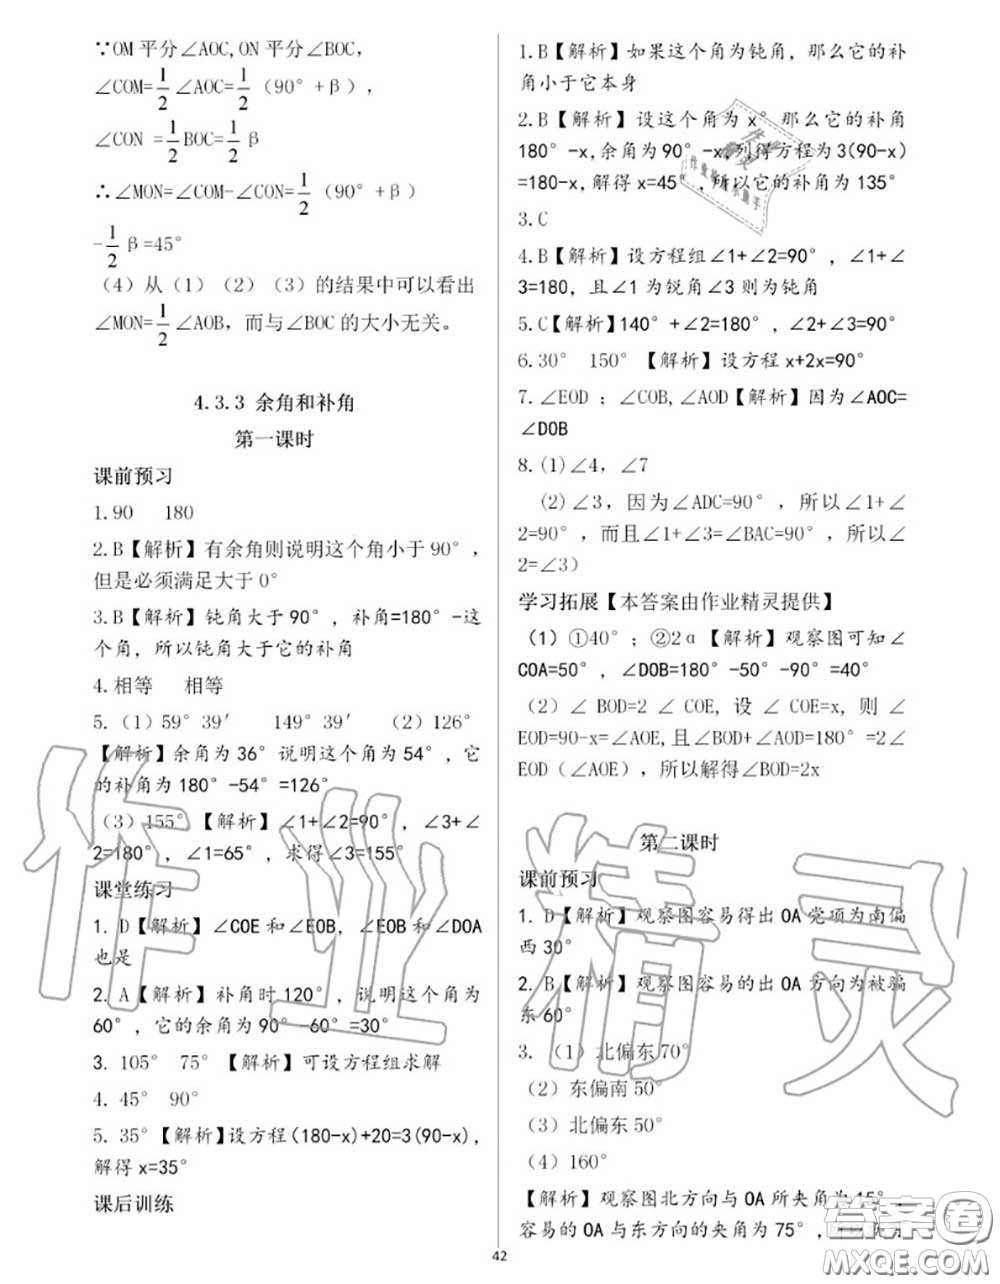 ∵OM平分∠AOC,ON平分∠BOC,
∠COM=1/2∠AOC=1/2（90°+β），
∠CON =1/2BOC=1/2 β
∴∠MON=∠COM-∠CON=1/2（90°+β）
-1/2β=45°
（4）从（1）（2）（3）的结果中可以看出
∠MON=1/2∠AOB，而与∠BOC的大小无关。
4.3.3 余角和补角
第一课时
课前预习
1.90 180
2.B【解析】有余角则说明这个角小于90°，
但是必须满足大于0°
3.B【解析】钝角大于90°，补角=180°-这
个角，所以钝角大于它的补角
4.相等 相等
5.（1）59°39′ 149°39′ （2）126°
【解析】余角为36°说明这个角为54°，它
的补角为180°-54°=126°
（3）155°【解析】∠1+∠2=90°，∠3+∠
2=180°，∠1=65°，求得∠3=155°
课堂练习
1. D【解析】∠COE和∠EOB，∠EOB和∠DOA
也是
2. A【解析】补角时120°，说明这个角为
60°，它的余角为90°-60°=30°
3. 105° 75°【解析】可设方程组求解
4. 45° 90°
5. 35°【解析】设方程(180-x)+20=3(90-x)，
解得x=35°
课后训练
1.B【解析】如果这个角为钝角，那么它的补
角小于它本身
2.B【解析】设这个角为x°那么它的补角
180°-x,余角为90°-x,列得方程为3(90-x)
=180-x，解得x=45°，所以它的补角为135°
3.C
4.B【解析】设方程组∠1+∠2=90°，∠1+∠
3=180，且∠1为锐角∠3则为钝角
5.C【解析】140°+∠2=180°，∠2+∠3=90°
6.30° 150°【解析】设方程x+2x=90°
7.∠EOD；∠COB,∠AOD【解析】因为∠AOC=
∠DOB
8.(1)∠4，∠7
(2)∠3，因为∠ADC=90°，所以∠1+∠
2=90°，而且∠1+∠3=∠BAC=90°，所以∠
2=∠3）
学习拓展【本答案由作业精灵提供】
（1）①40°；②2α【解析】观察图可知∠
COA=50°，∠DOB=180°-50°-90°=40°
（2）∠BOD=2∠COE,设∠COE=x,则∠
EOD=90-x=∠AOE,且∠BOD+∠AOD=180°=2∠
EOD（∠AOE），所以解得∠BOD=2x
第二课时
课前预习
1. D【解析】观察图容易得出OA党项为南偏
西30°
2. B【解析】观察图容易的出OA方向为被骗
东60°
3.（1）北偏东70°
（2）东偏南50°
（3）北偏东50°
（4）160°
【解析】观察图北方向与OA所夹角为15°，
容易的OA与东方向的夹角为75°，
42
作业精灵
答案卷
MXQE.COM